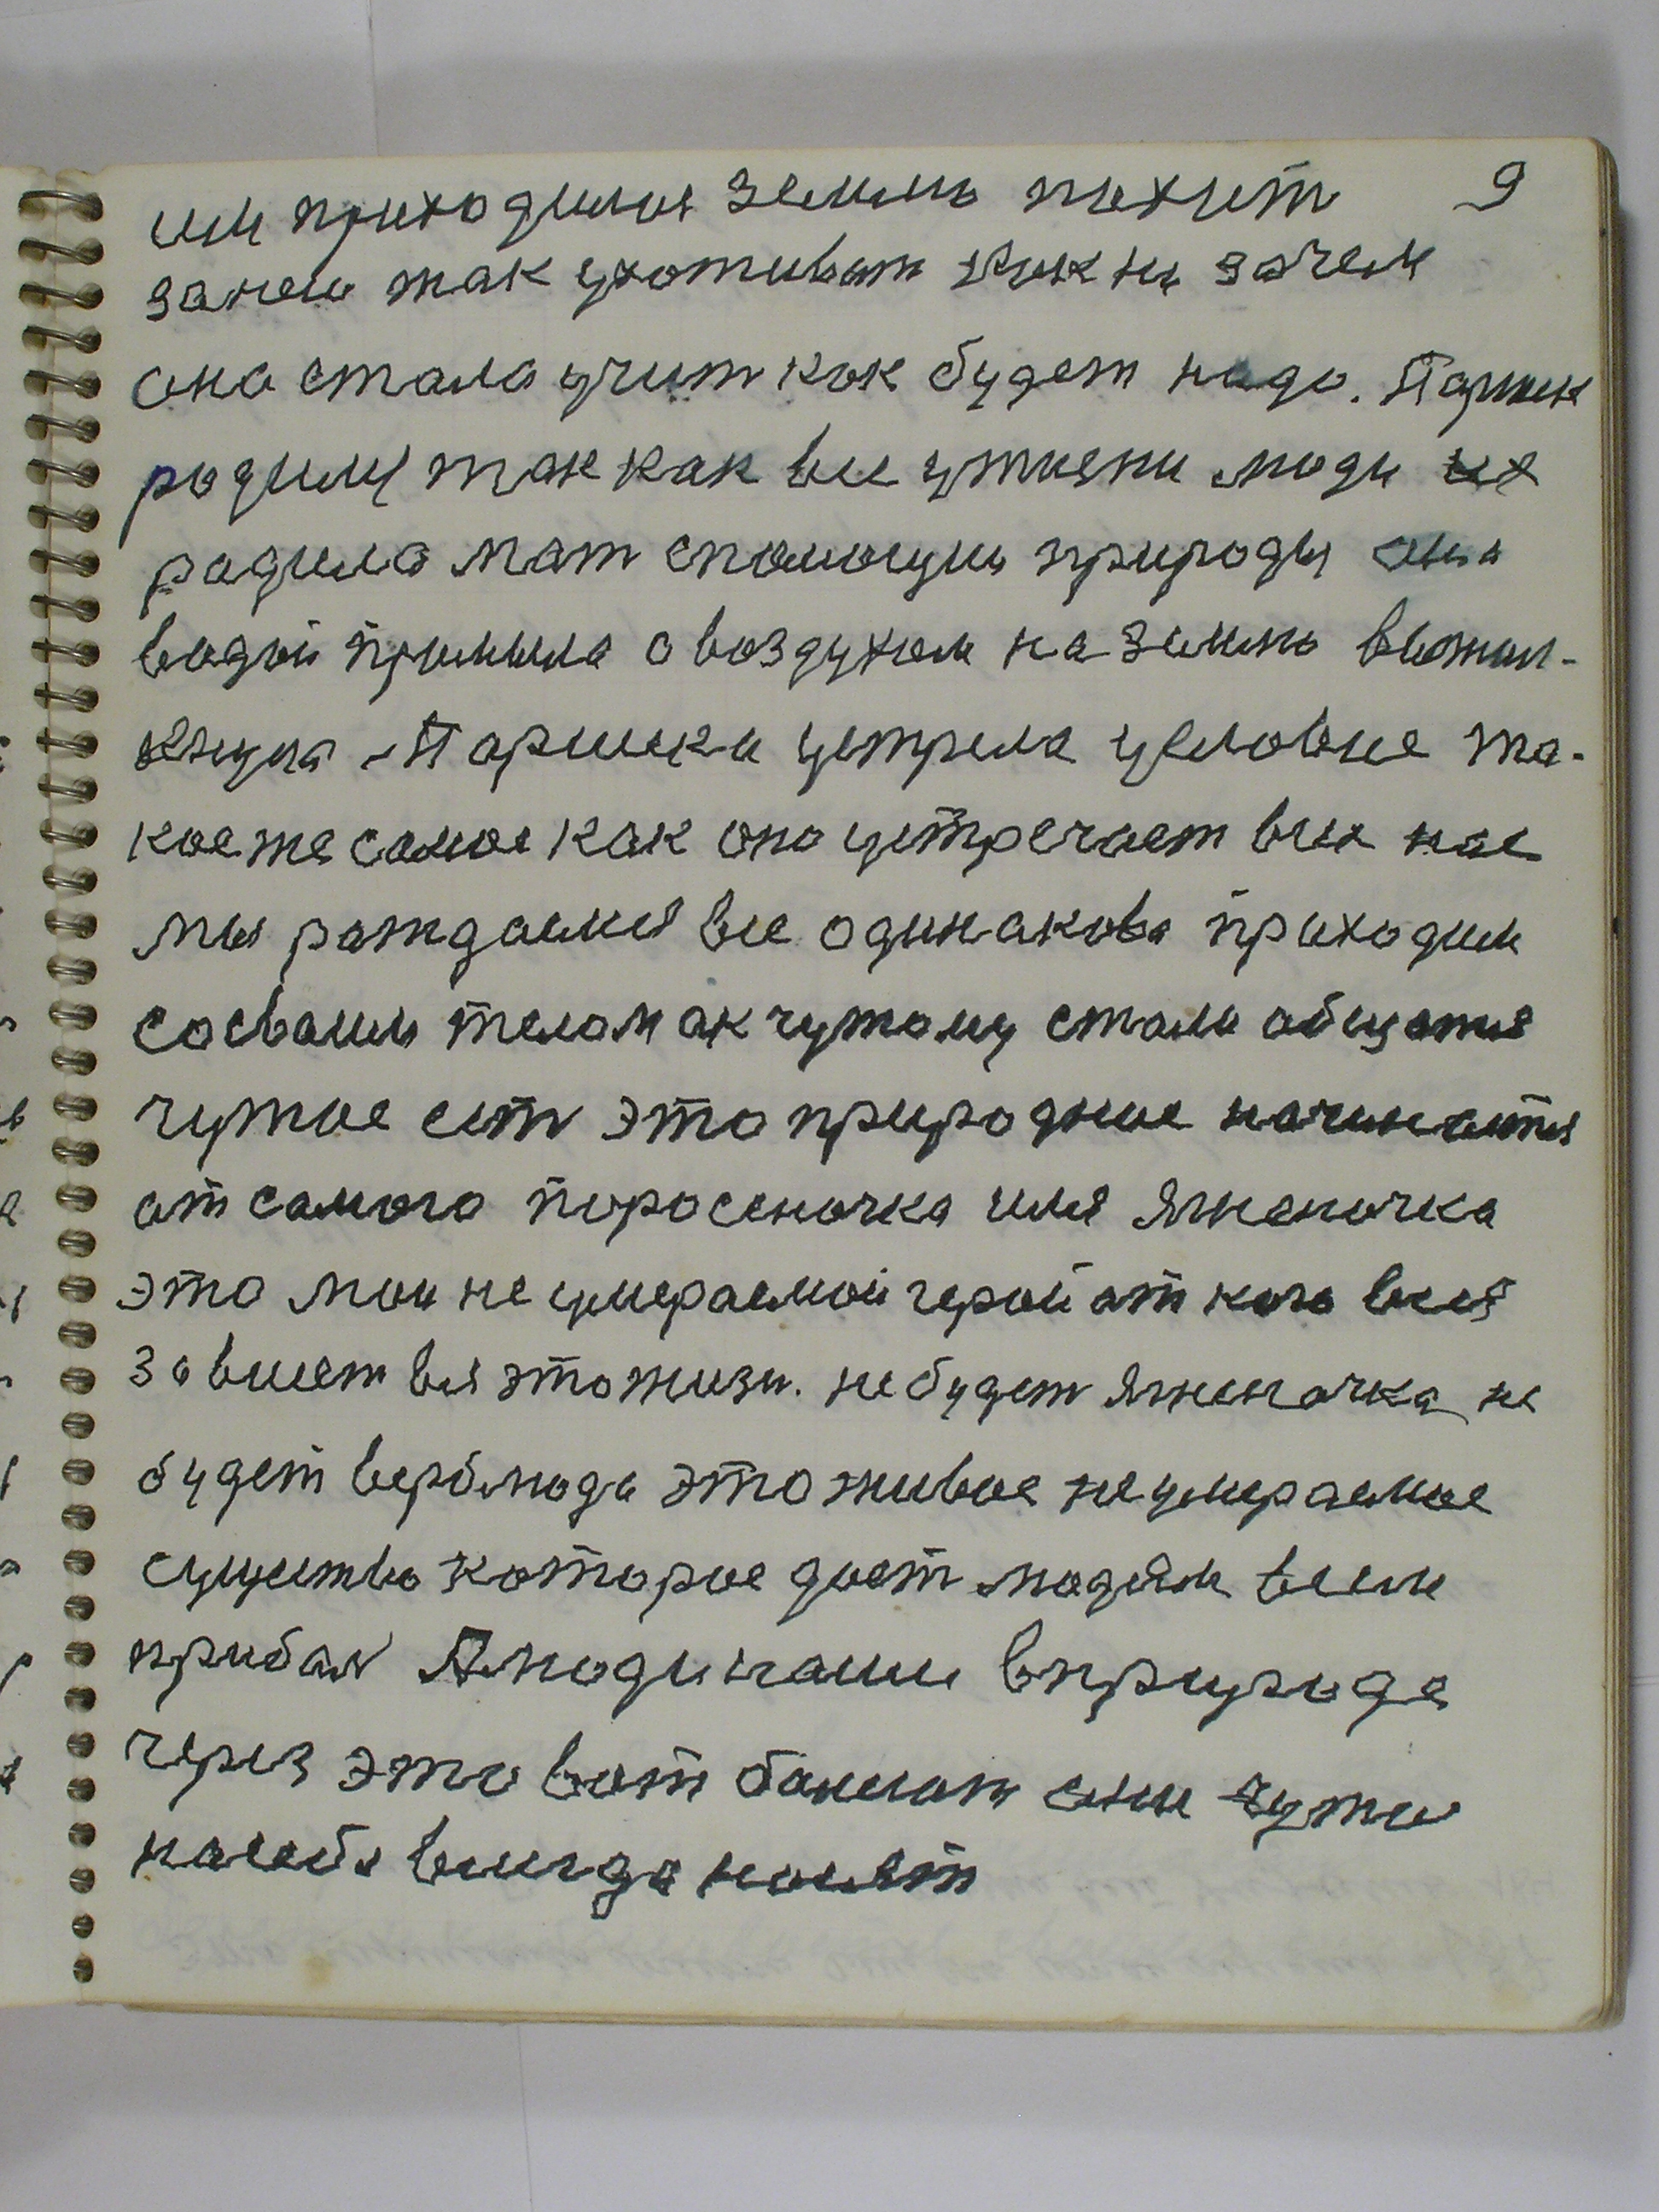 им приходилия землю пахит 9
занею так ухотиват как ни зачем
она стала учит как будет надо. Паршек
родилу так как все утжени люди их
радила мат спомощию природы они
водой примыла а воздухом на землю вытал-
кнула Паршека устрела условие та-
коежесамое как оно устречает всих нас
мы рождаемся все одинакова приходим
сосваим телом ак чужому стали общатия
чужое ест это природное начинается
ат самого поросеночка или Ягненочка
это мои не умераемой герой ат кого вся
зависет вся этожизн. небудет Ягненочка не
будет верблюда этоживое неумераемое
сущиство которое дает людям всем
прибал Алюди наши вприроде
через это вот балеют они чужое
насебе всигда носят